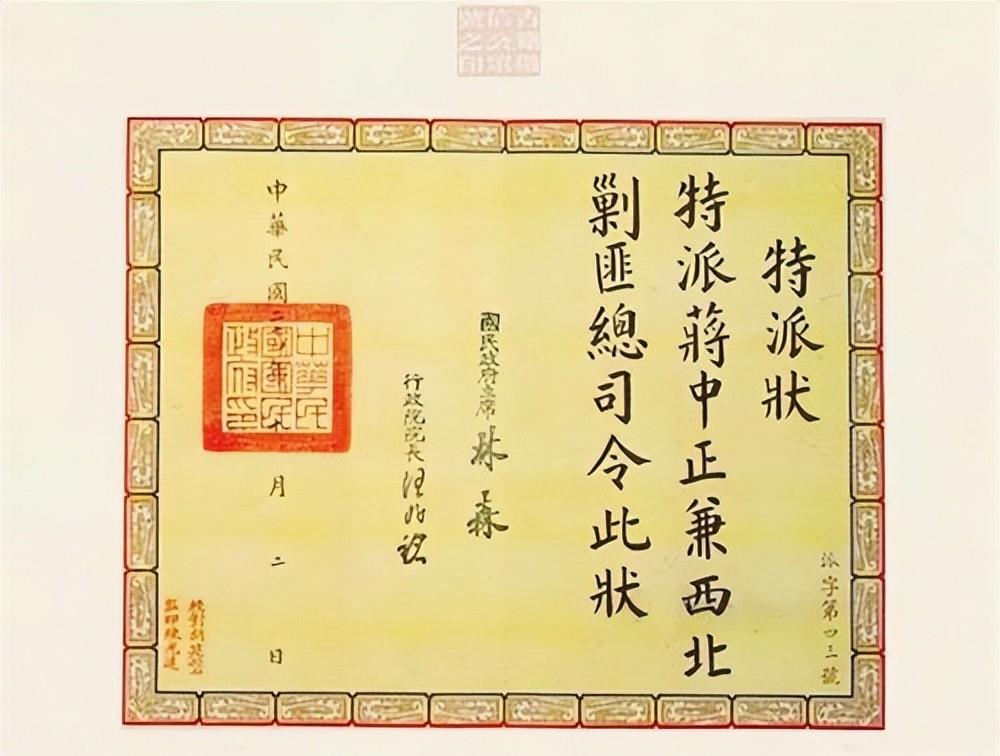 派字第四三號
特派狀
特派蔣中正兼西北
剿匪總司令此狀
國民政府主席林森
行政院院長汪兆銘
中華民國二 月二日
中華民
國國民
政府印
校對胡
監印陳光遠